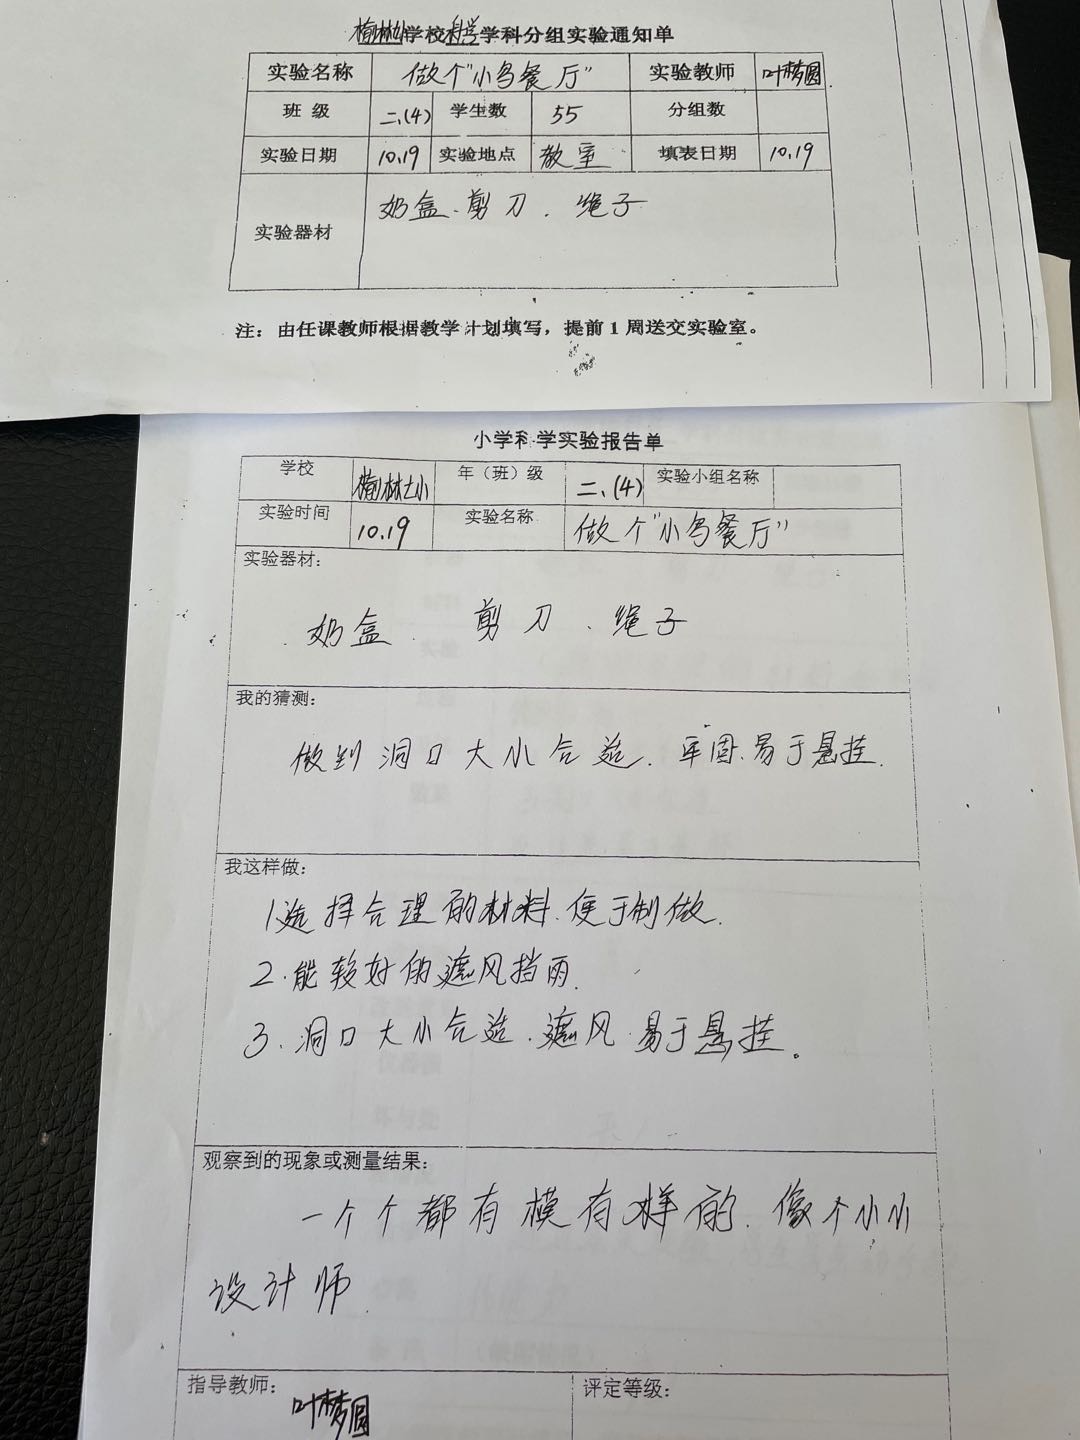 榆林小学校科学学科分组实验通知单
实验名称 做个"小鸟餐厅" 实验教师 叶梦圆
班 级 二、(4) 学生数 55 分组数
实验日期 10.19 实验地点 教室 填表日期 10.19
实验器材 奶盒、剪刀、绳子
注：由任课教师根据教学计划填写，提前1周送交实验室。
小学科学实验报告单
学校 榆林小 年（班）级 二、(4) 实验小组名称
实验时间 10.19 实验名称 做个"小鸟餐厅"
实验器材：
奶盒、剪刀、绳子
我的猜测：
做到洞口大小合适、牢固、易于悬挂.
我这样做：
1.选择合理的材料、便于制做.
2.能较好的遮风挡雨.
3.洞口大小合适、遮风、易于悬挂。
观察到的现象或测量结果：
一个个都有模有样的、像个小小
设计师.
指导教师： 叶梦圆 评定等级：